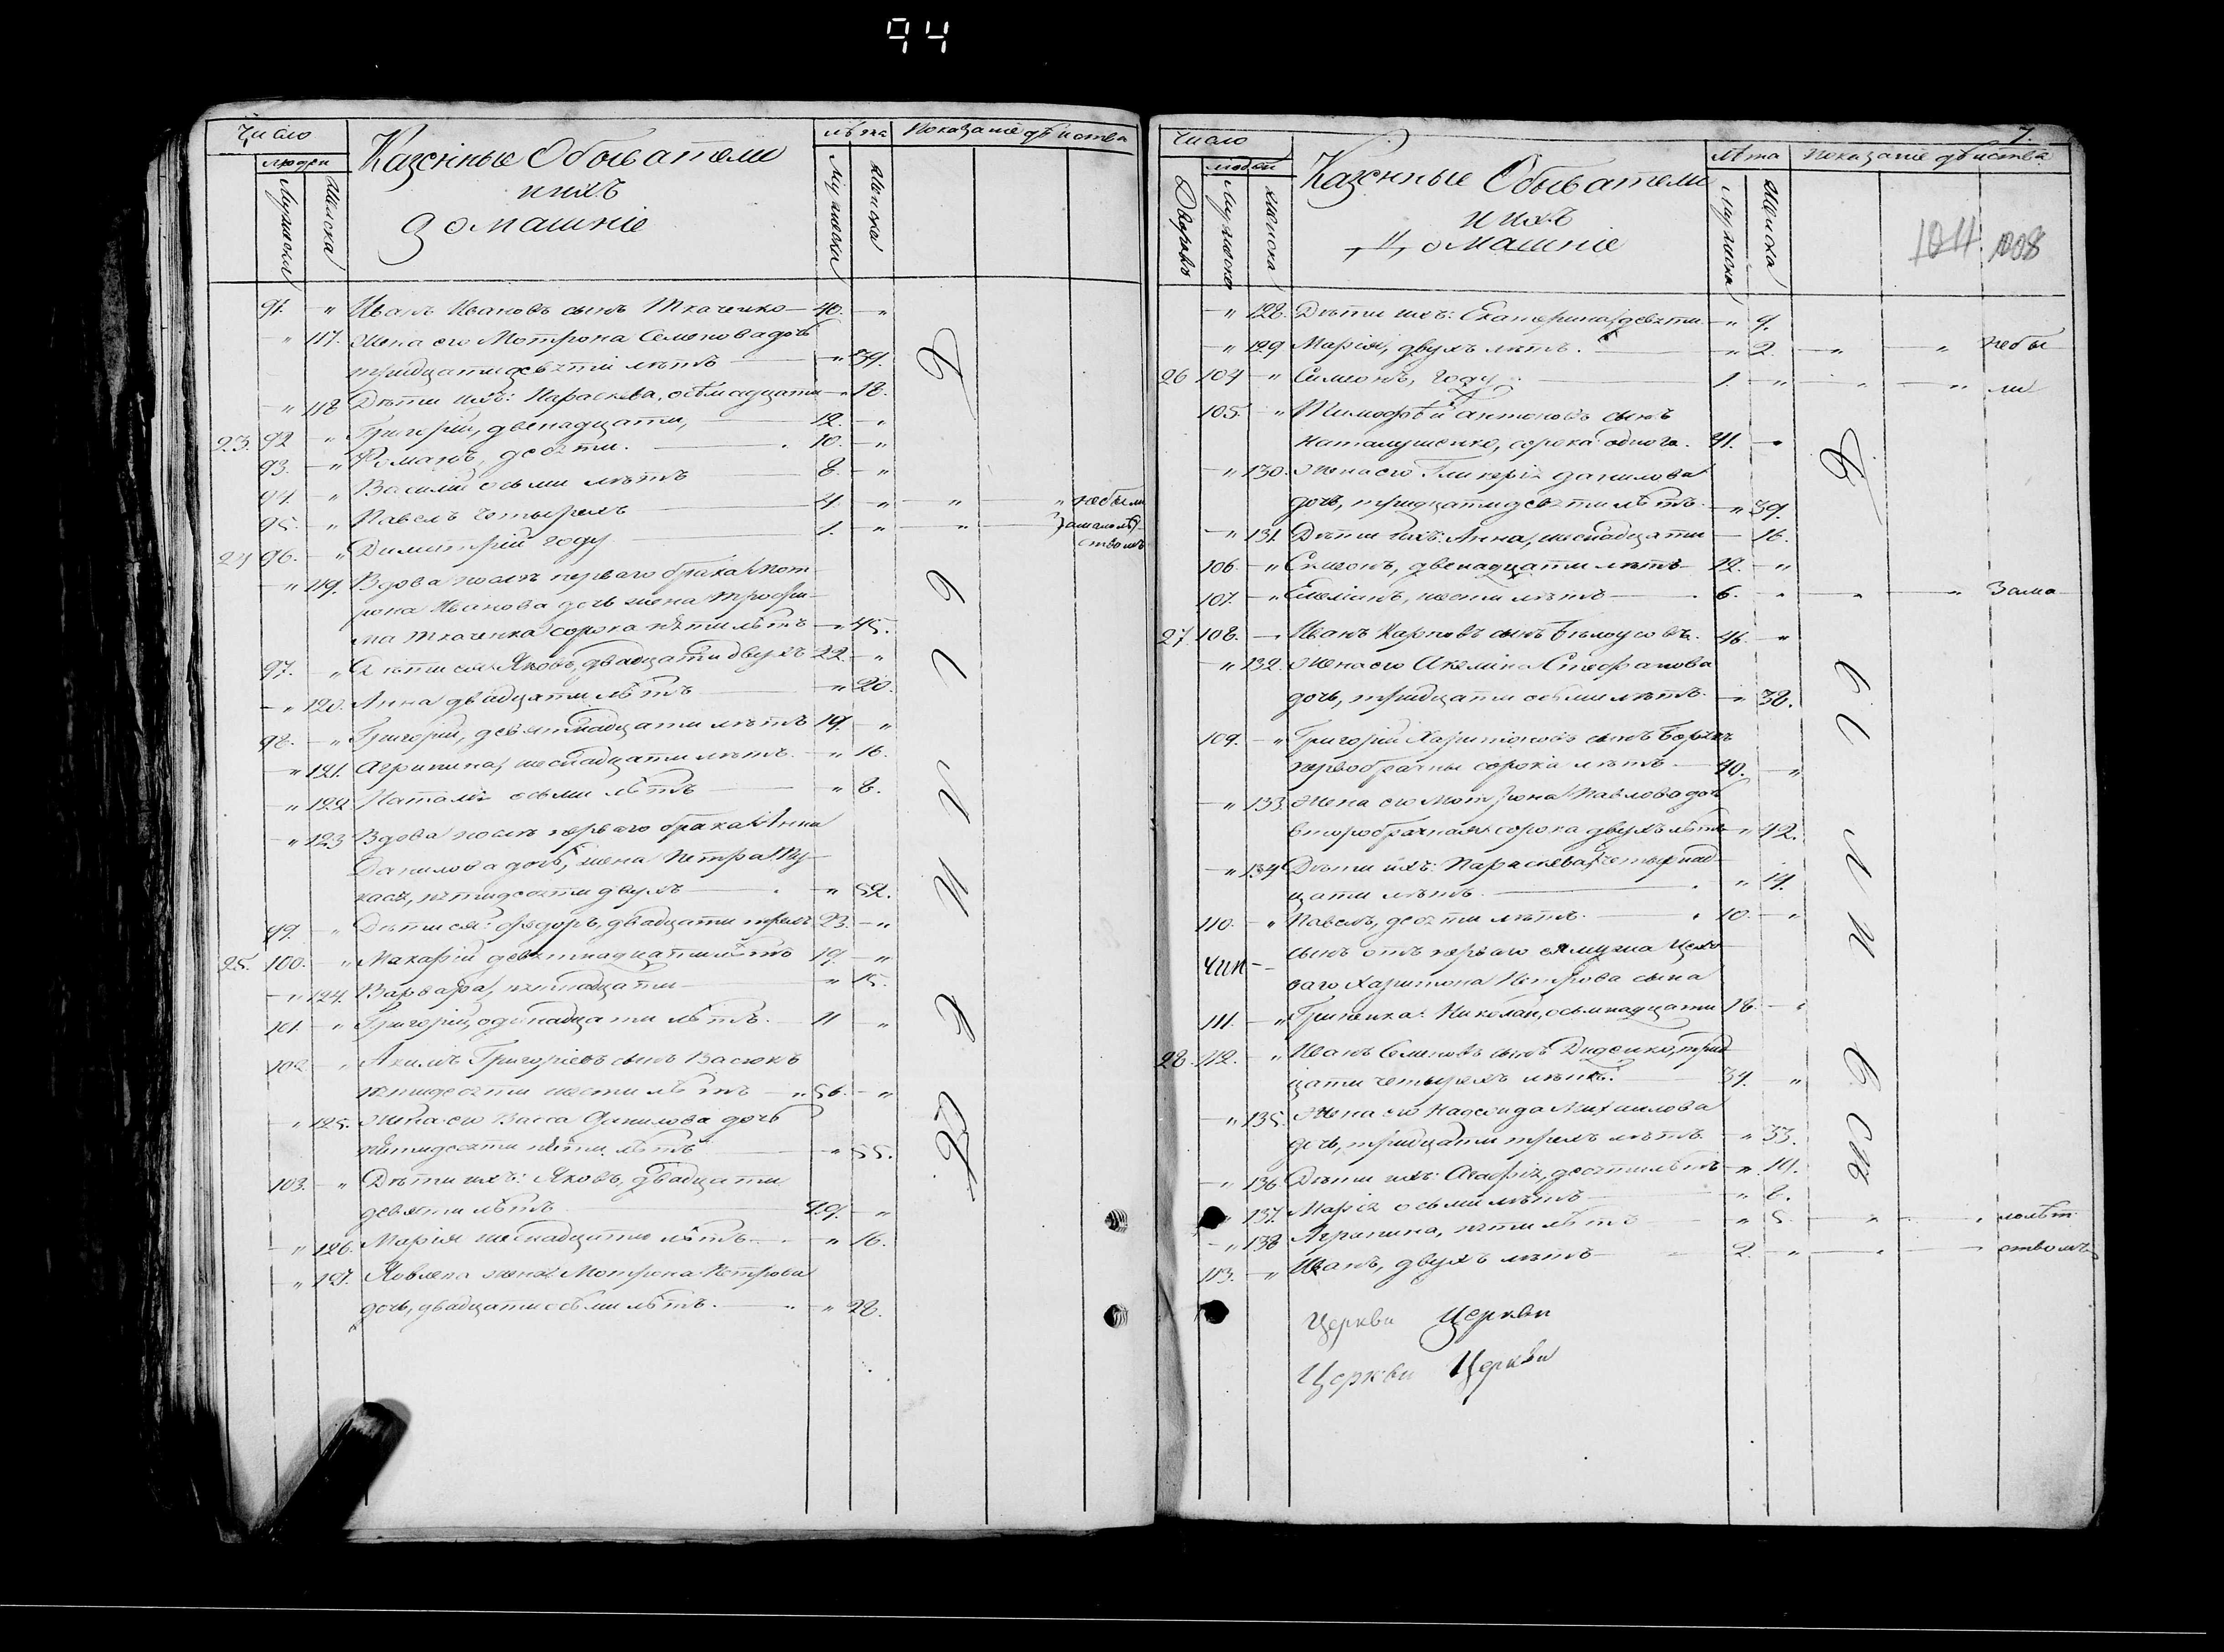 94
Число
людей
Мужеска
Женска
Казенные Обыватели
и ихъ
домашніе
лѣта
Мужеска
Женска
Показаніе дѣйства
91. " Иванъ Ивановъ сынъ Ткаченко 40. "
" 117. Жена его Мотрона Семенова дочь
тридцати девяти лѣтъ " 39.
" 118 Дѣти ихъ: Параскева, осьмнадцати " 18.
23. 92 " Григорій, двенадцати, 12. "
93. " Романъ, десяти. 10. "
94. " Василій осьми лѣтъ 8. "
95. " Павелъ четырехъ 4. " " " небыли
24 96. " Димитрій году 1. " " замалолѣт
ствомъ
" 119. Вдова послѣ перваго брака Мот-
рона Иванова дочь жена Трофи-
ма Ткаченка сорока пяти лѣтъ " 45.
97. " Дѣти ея: Яковъ, двадцати двухъ 22. "
" 120. Анна двадцати лѣтъ " 20.
98. " Григорій, девятнадцати лѣтъ 19. "
" 121. Агрипина, шеснадцати лѣтъ. " 16.
" 122. Наталія осьми лѣтъ " 8.
" 123 Вдова послѣ перваго брака Анна
Данилова дочь, жена Петра
пятидесяти двухъ " 52.
99. " Дѣти ея: Федоръ, двадцати трехъ 23. "
25. 100. " Макарій девятнадцати лѣтъ 19. "
" 124. Варвара, пятнадцати " 15.
101. " Григорій, одинадцати лѣтъ. 11 "
102 " Акимъ Григоріевъ сынъ Васюкъ
пятидесяти шести лѣтъ 56. "
" 125. Жена его Васса Данилова дочь
пятидесяти пяти лѣтъ " 55.
103. " Дѣти ихъ: Яковъ, двадцати
девяти лѣтъ 29. "
" 126. Марія шеснадцати лѣтъ " 16.
" 127. Яковлева жена Мотрона Петрова
дочь, двадцати осьми лѣтъ. " 28.
7.
Число
Дворовъ
людей
Мужеска
Женска
Казенные Обыватели
и ихъ
домашніе
лѣта
Мужеска
Женска
Показаніе дѣйства
1011 1008
" 128. Дѣти ихъ: Екатерина, девяти " 9.
" 129 Марія, двухъ лѣтъ. " 2. " " небы
26 104 " Симеонъ, году 1. " " " ли
105. " Тимофѣй Антоновъ сынъ
сорока одного. 41. "
" 130. Жена его Гликерія Данилова
дочь, тридцати девяти лѣтъ. " 39.
" 131. Дѣти ихъ: Анна, шеснадцати 16.
106. " Симеонъ, двенадцати лѣтъ 12. "
107. " Емеліанъ, шести лѣтъ 6. " " " Зама
27. 108. " Иванъ Карповъ сынъ Бѣлоусовъ. 46. "
" 132. Жена его Акелина Стефанова
дочь, тридцати осьми лѣтъ. " 38.
109. " Григорій Харитоновъ сынъ
первобрачны сорока лѣтъ 40. "
" 133. Жена его Мотрона Павлова дочь
второбрачная сорока двухъ лѣтъ " 42.
" 134 Дѣти ихъ: Параскева, четырнад-
цати лѣтъ. " 14.
110. " Павелъ, десяти лѣтъ. 10. "
сынъ отъ перваго ея мужа
Харитона Петрова сына
111. " Гриненка: Николай, осьмнадцати 18. "
28. 112. " Иванъ Семеновъ сынъ Диденко, трид
цати четырехъ лѣтъ. 34. "
" 135. Жена его Надежда Михаилова
дочь, тридцати трехъ лѣтъ. " 33.
" 136 Дѣти ихъ: Агафія, десяти лѣтъ " 10.
" 137. Марія осьми лѣтъ " 8.
" 138 Агрипина, пяти лѣтъ " 5. " " лолѣт
113. " Иванъ, двухъ лѣтъ 2. " " ствомъ
Церкви Церкви
Церкви Церкви